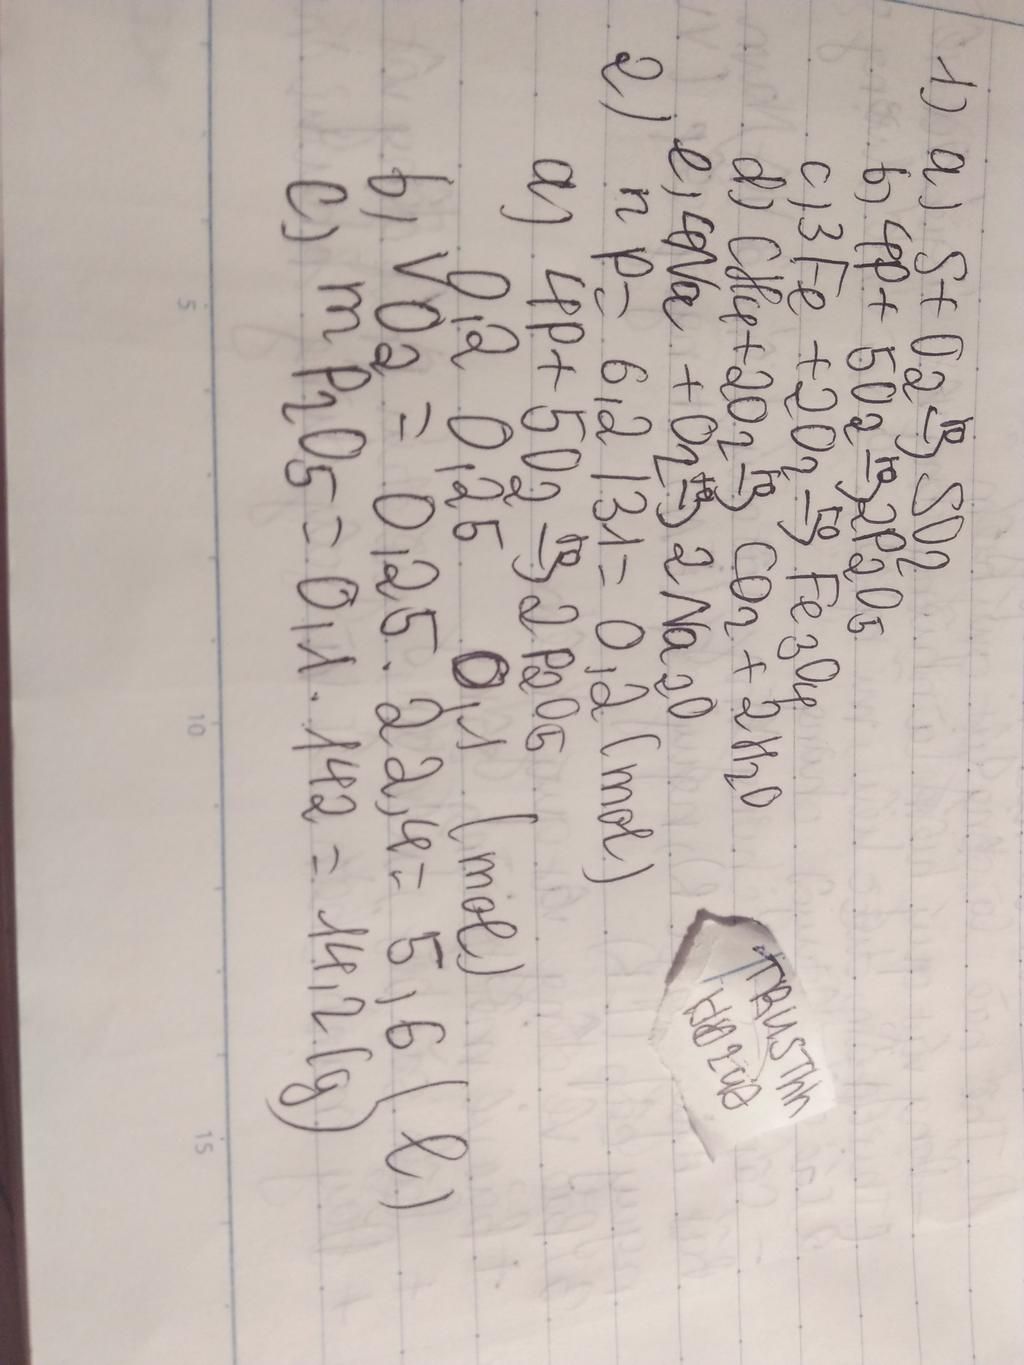 1) a) S + O2 –t°→ SO2
b, 4P + 5O2 –t°→ 2P2O5
c, 3Fe + 2O2 –t°→ Fe3O4
d) CH4 + 2O2 –t°→ CO2 + 2H2O
e, 4Na + O2 –t°→ 2Na2O
2) n P = 6,2/31 = 0,2 (mol)
a) 4P + 5O2 –t°→ 2P2O5
0,2 0,25 0,1 (mol)
b, VO2 = 0,25 . 22,4 = 5,6 (l)
c) m P2O5 = 0,1 . 142 = 14,2 (g)
5
10
15